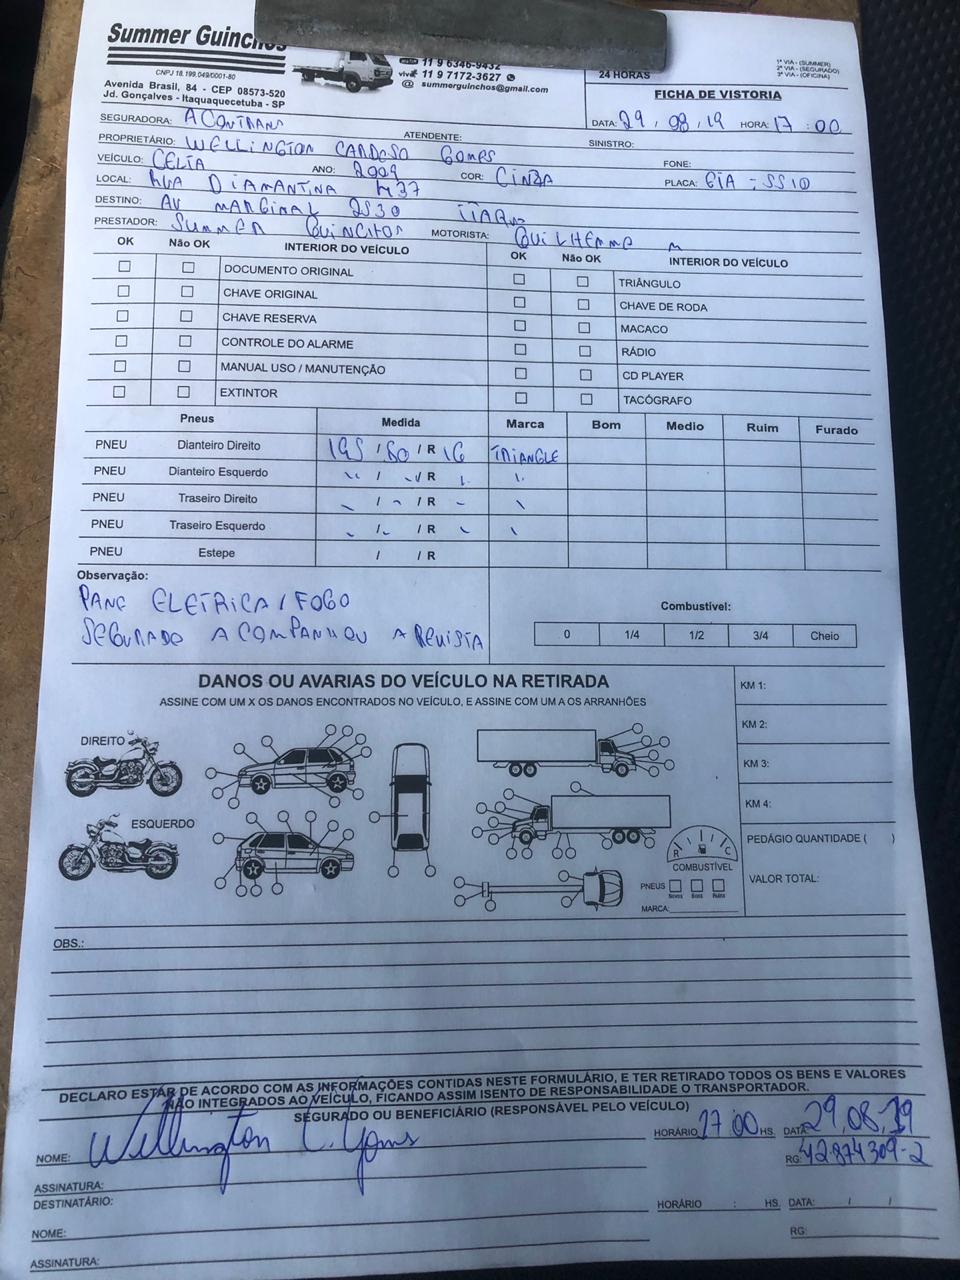 Summer Guinchos
CNPJ 18.199.049/0001-80
Avenida Brasil, 84 - CEP 08573-520
Jd. Gonçalves - Itaquaquecetuba - SP
11 9 6346-9432
vivo 11 9 7172-3627
@ summerguinchos@gmail.com
24 HORAS
1ª VIA - (SUMMER)
2ª VIA - (SEGURADO)
3ª VIA - (OFICINA)
FICHA DE VISTORIA
SEGURADORA: ACONTRANS
DATA: 29 / 08 / 19 HORA: 17 : 00
PROPRIETÁRIO: WELLINGTON CARDOSO GOMES ATENDENTE: SINISTRO:
VEÍCULO: CELTA ANO: 2009 COR: CINZA FONE:
LOCAL: RUA DIAMANTINA 437 PLACA: EIA - 5510
DESTINO: AV MARGINAL 2530 ITAQUÁ
PRESTADOR: SUMMER GUINCHOS MOTORISTA: GUILHERME M
OK Não OK INTERIOR DO VEÍCULO OK Não OK INTERIOR DO VEÍCULO
DOCUMENTO ORIGINAL TRIÂNGULO
CHAVE ORIGINAL CHAVE DE RODA
CHAVE RESERVA MACACO
CONTROLE DO ALARME RÁDIO
MANUAL USO / MANUTENÇÃO CD PLAYER
EXTINTOR TACÓGRAFO
Pneus Medida Marca Bom Medio Ruim Furado
PNEU Dianteiro Direito 195 / 60 / R 16 TRIANGLE
PNEU Dianteiro Esquerdo / / R
PNEU Traseiro Direito / / R
PNEU Traseiro Esquerdo / / R
PNEU Estepe / / R
Observação:
PANE ELETRICA / FOGO
SEGURADO ACOMPANHOU A REVISTA
Combustível:
0 1/4 1/2 3/4 Cheio
DANOS OU AVARIAS DO VEÍCULO NA RETIRADA
ASSINE COM UM X OS DANOS ENCONTRADOS NO VEÍCULO, E ASSINE COM UM A OS ARRANHÕES
KM 1:
KM 2:
KM 3:
KM 4:
PEDÁGIO QUANTIDADE ( )
VALOR TOTAL:
DIREITO
ESQUERDO
R C
COMBUSTÍVEL
PNEUS Novos Bons Ruins
MARCA:
OBS.:
DECLARO ESTAR DE ACORDO COM AS INFORMAÇÕES CONTIDAS NESTE FORMULÁRIO, E TER RETIRADO TODOS OS BENS E VALORES
NÃO INTEGRADOS AO VEÍCULO, FICANDO ASSIM ISENTO DE RESPONSABILIDADE O TRANSPORTADOR.
SEGURADO OU BENEFICIÁRIO (RESPONSÁVEL PELO VEÍCULO)
HORÁRIO 17 00 HS. DATA: 29, 08, 19
NOME: Wellington C. Gomes RG: 42.874309-2
ASSINATURA:
DESTINATÁRIO: HORÁRIO : HS. DATA: / /
NOME: RG:
ASSINATURA: